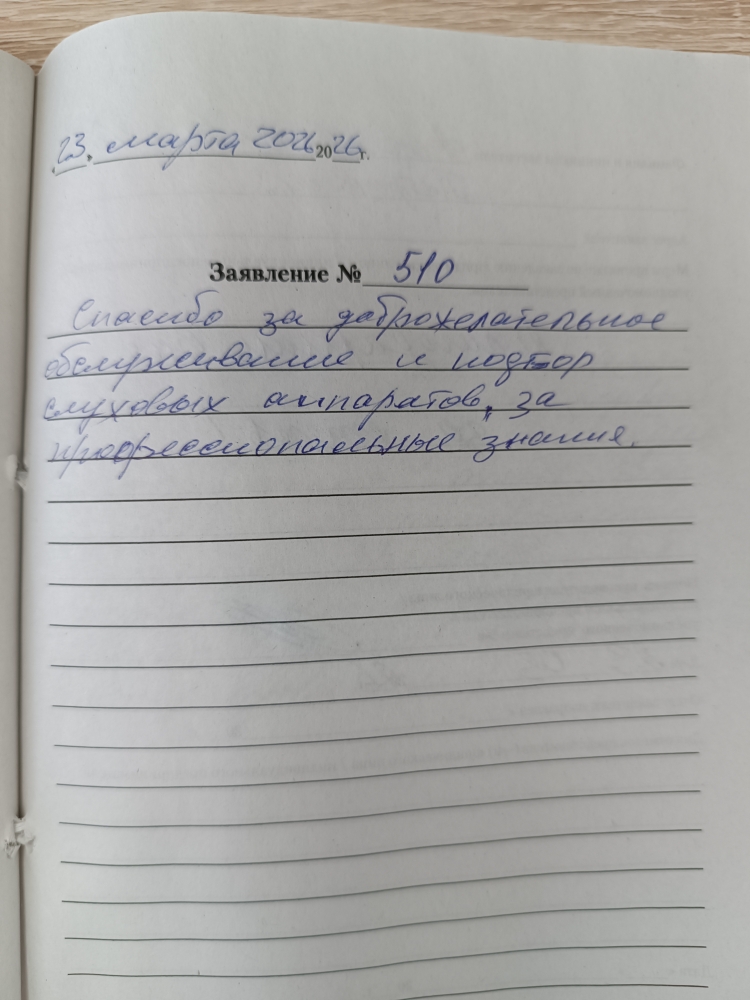 23. марта 2026 2026г.
Заявление № 510
Спасибо за доброжелательное
обслуживание и подбор
слуховых аппаратов, за
профессиональные знания.